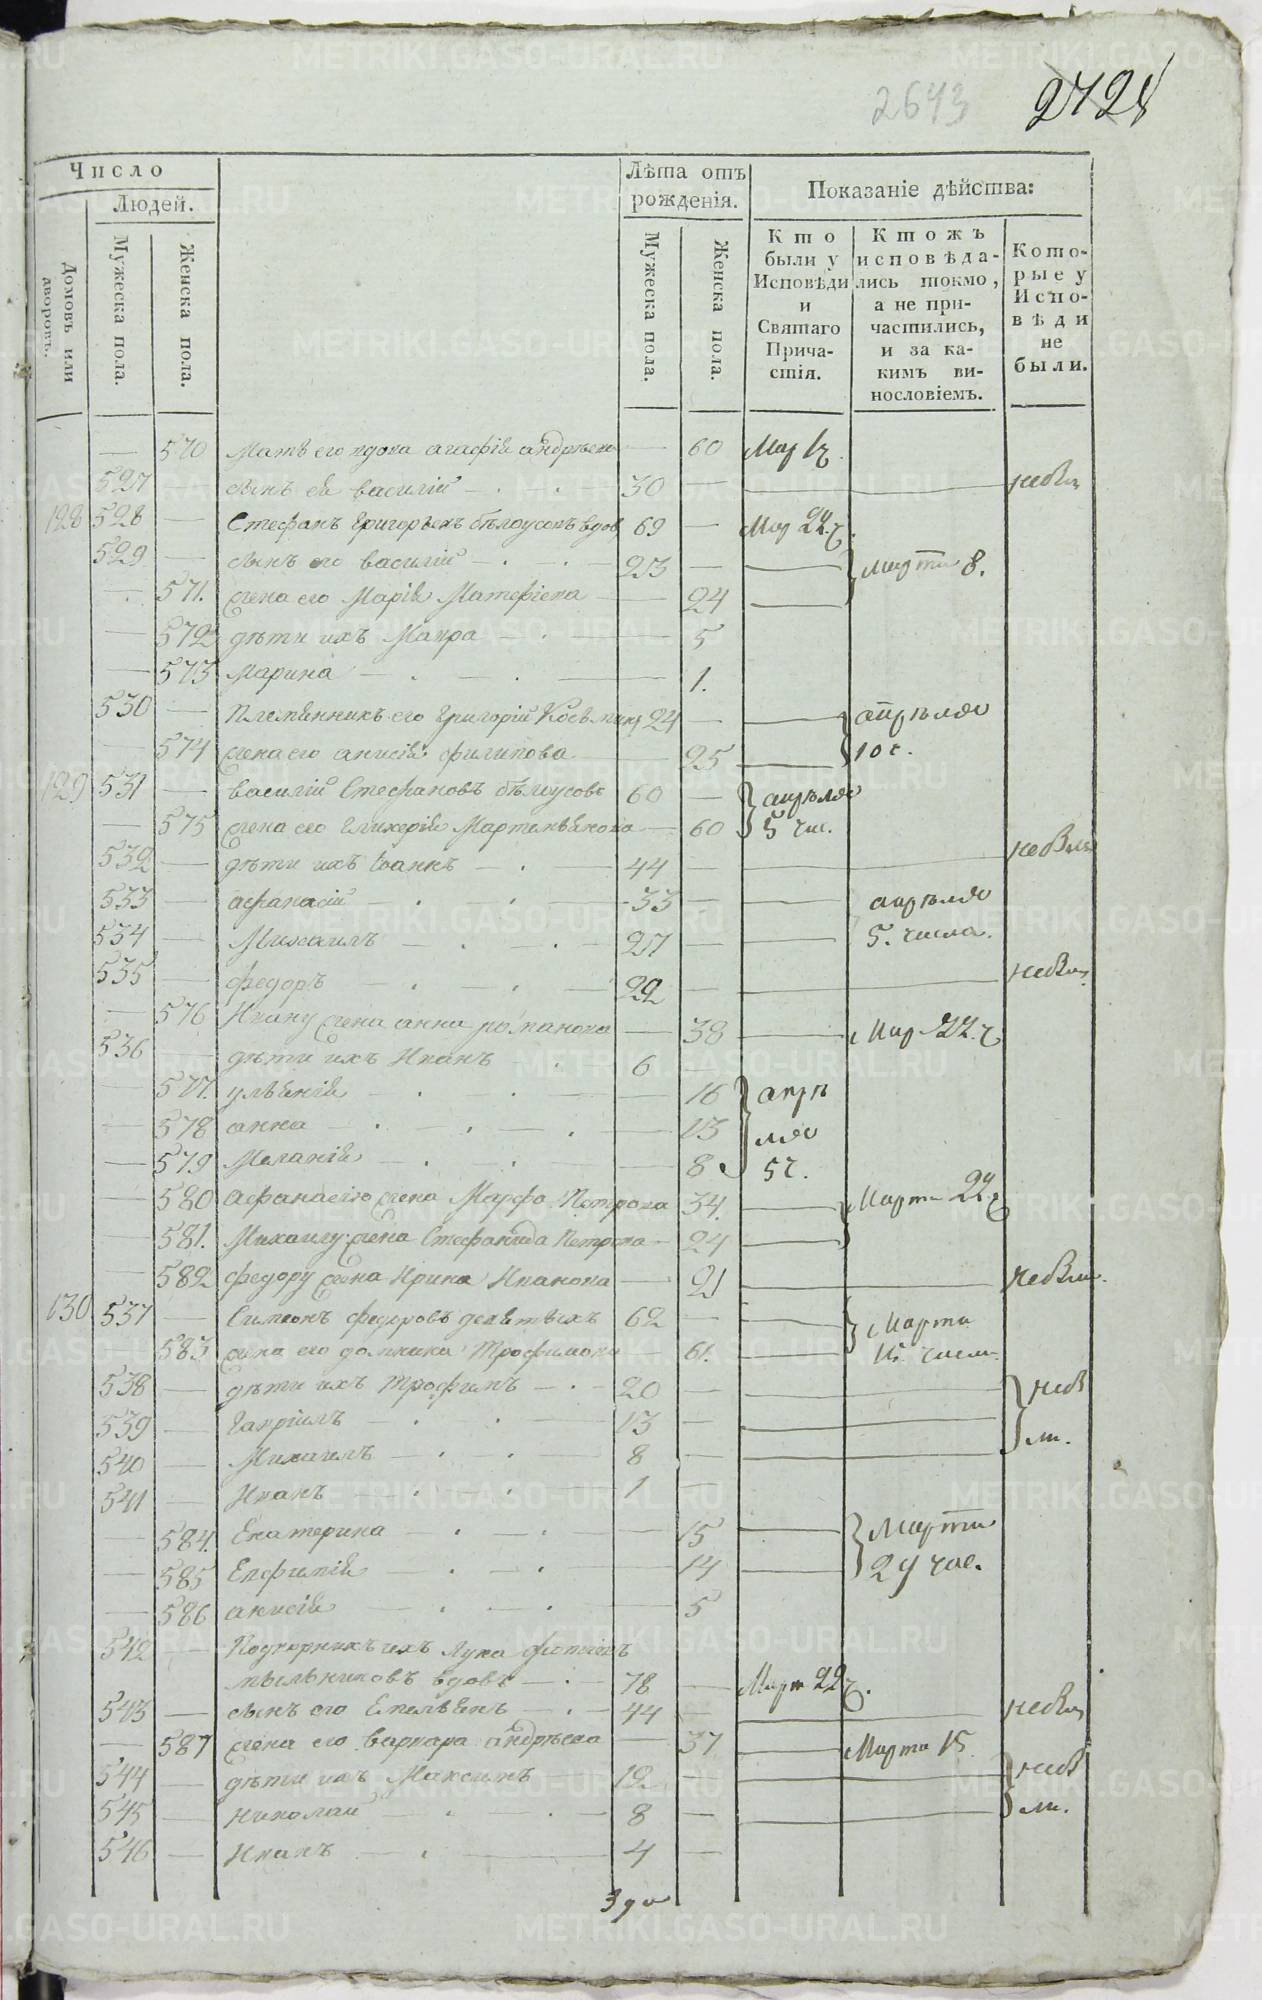 2643 2424
Число
Людей.
Домовъ или дворовъ.
Мужеска пола.
Женска пола.
Лѣта отъ рожденія.
Мужеска пола.
Женска пола.
Показаніе дѣйства:
Кто были у Исповѣди и Святаго Причастія.
Ктожъ исповѣдались токмо, а не причастились, и за какимъ винословіемъ.
Которые у Исповѣди не были.
— 570 Мать его вдова агафія андрѣева — 60 Мар
527 сынъ ея василій 30 — небыл
128 528 — Стефанъ Григорьевъ бѣлоусовъ вдов 69 — Мар 22.ч.
529 — сынъ его василій 23 — марта 8.
571. жена его Марія Матфіева — 24
— 572 дѣти ихъ Мавра — 5
— 573 Марина — 1.
530 — Племянникъ его Григорій 24 — апрѣля
— 574 жена его анисія филипова 25 10 ч.
129 531 — василій Стефановъ бѣлоусовъ 60 — апрѣля
— 575 жена его Гликерія Мартемьянова — 60 5 чис.
532 — дѣти ихъ Іоаннъ 44 — небылъ
533 — афанасій 33 — апрѣля
534 — Михаилъ 27 — 5. числа.
535 — федоръ 22 — небыл
— 576 Ивану жена анна романова — 38 Мар 22.ч
536 — дѣти ихъ Иванъ 6 —
577. ульянія — 16 апрѣ
— 578 анна — 13 ля
— 579 Меланія — 8 5 ч.
— 580 афанасію жена Марфа Петрова 34. Марта 22 ч
— 581. Михаилу жена Стефанида Петрова — 24
— 582 федору жена Ирина Иванова — 21 небыл.
130 537 — Симеонъ федоровъ девятыхъ 62 — Марта
583 жена его домника Трофимова — 61. 15 числ.
538 — дѣти ихъ Трофимъ 20 — небы
539 — Гавріилъ 13 — ли.
540 — Михаилъ 8 —
541 — Иванъ 1 —
— 584. Екатерина — 15 Марта
— 585 Евфимія — 14 29 чис.
— 586 анисія — 5
542 — Подворникъ ихъ Лука фотіевъ
мыльниковъ вдовъ 78 — Март 22 ч.
543 — сынъ его Емельянъ 44 — небыл
— 587 жена его варвара андрѣева — 37 Марта 15
544 — дѣти ихъ Максимъ 12 — небы
545 — николай 8 — ли.
546 — Иванъ 4 —
METRIKI.GASO-URAL.RU